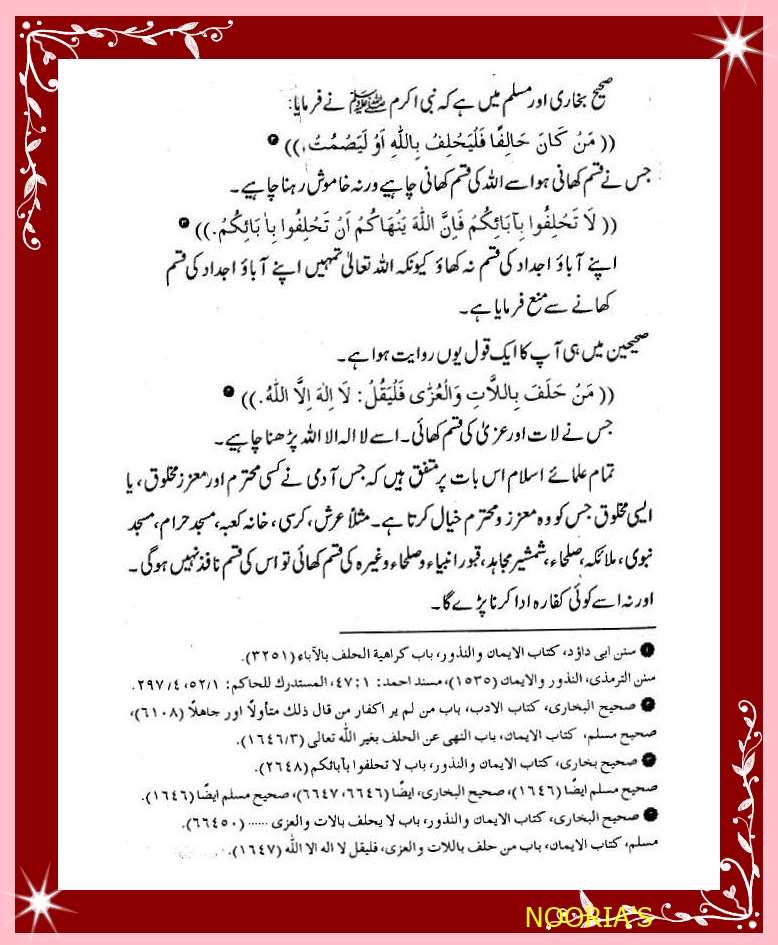 صحیح بخاری اور مسلم میں ہے کہ نبی اکرم ﷺ نے فرمایا:
(( مَنْ كَانَ حَالِفًا فَلْيَحْلِفْ بِاللّٰهِ اَوْ لِيَصْمُتْ.)) ❷
جس نے قسم کھانی ہو اسے اللہ کی قسم کھانی چاہیے ورنہ خاموش رہنا چاہیے۔
(( لَا تَحْلِفُوا بِآبَائِكُمْ فَاِنَّ اللّٰهَ يَنْهَاكُمْ اَنْ تَحْلِفُوا بِاٰبَائِكُمْ.)) ❸
اپنے آباؤ اجداد کی قسم نہ کھاؤ کیونکہ اللہ تعالیٰ تمہیں اپنے آباؤ اجداد کی قسم
کھانے سے منع فرمایا ہے۔
صحیحین میں ہی آپ کا ایک قول یوں روایت ہوا ہے۔
(( مَنْ حَلَفَ بِاللَّاتِ وَالْعُزّٰى فَلْيَقُلْ: لَا اِلٰهَ اِلَّا اللّٰهُ.)) ❹
جس نے لات اور عزیٰ کی قسم کھائی۔ اسے لا الہ الا اللہ پڑھنا چاہیے۔
تمام علمائے اسلام اس بات پر متفق ہیں کہ جس آدمی نے کسی محترم اور معزز مخلوق، یا
ایسی مخلوق جس کو وہ معزز و محترم خیال کرتا ہے۔ مثلاً عرش، کرسی، خانہ کعبہ، مسجد حرام، مسجد
نبوی، ملائکہ، صلحاء، شمشیر مجاہد، قبور انبیاء و صلحاء وغیرہ کی قسم کھائی تو اس کی قسم نافذ نہیں ہوگی۔
اور نہ اسے کوئی کفارہ ادا کرنا پڑے گا۔
❶ سنن ابی داؤد، كتاب الايمان والنذور، باب كراهية الحلف بالآباء (٣٢٥١).
سنن الترمذی، النذور والايمان (١٥٣٥)، مسند احمد: ١؛ ٤٧، المستدرك للحاكم: ١/٥٢، ٤/٢٩٧.
❷ صحيح البخاری، كتاب الادب، باب من لم ير اكفار من قال ذلك متأولًا اور جاهلًا (٦١٠٨)،
صحيح مسلم، كتاب الايمان، باب النهى عن الحلف بغير اللّٰه تعالى (١٦٤٦/٣).
❸ صحيح بخاری، كتاب الايمان والنذور، باب لا تحلفوا بآبائكم (٢٦٤٨)
صحيح مسلم ايضًا (١٦٤٦)، صحيح البخاری، ايضًا (٦٦٤٦، ٦٦٤٧)، صحيح مسلم ايضًا (١٦٤٦).
❹ صحيح البخاری، كتاب الايمان والنذور، باب لا يحلف بالات والعزى ...... (٦٦٤٥٠).
مسلم، كتاب الايمان، باب من حلف باللات والعزى، فليقل لا اله الا اللّٰه (١٦٤٧).
NOORIA'S